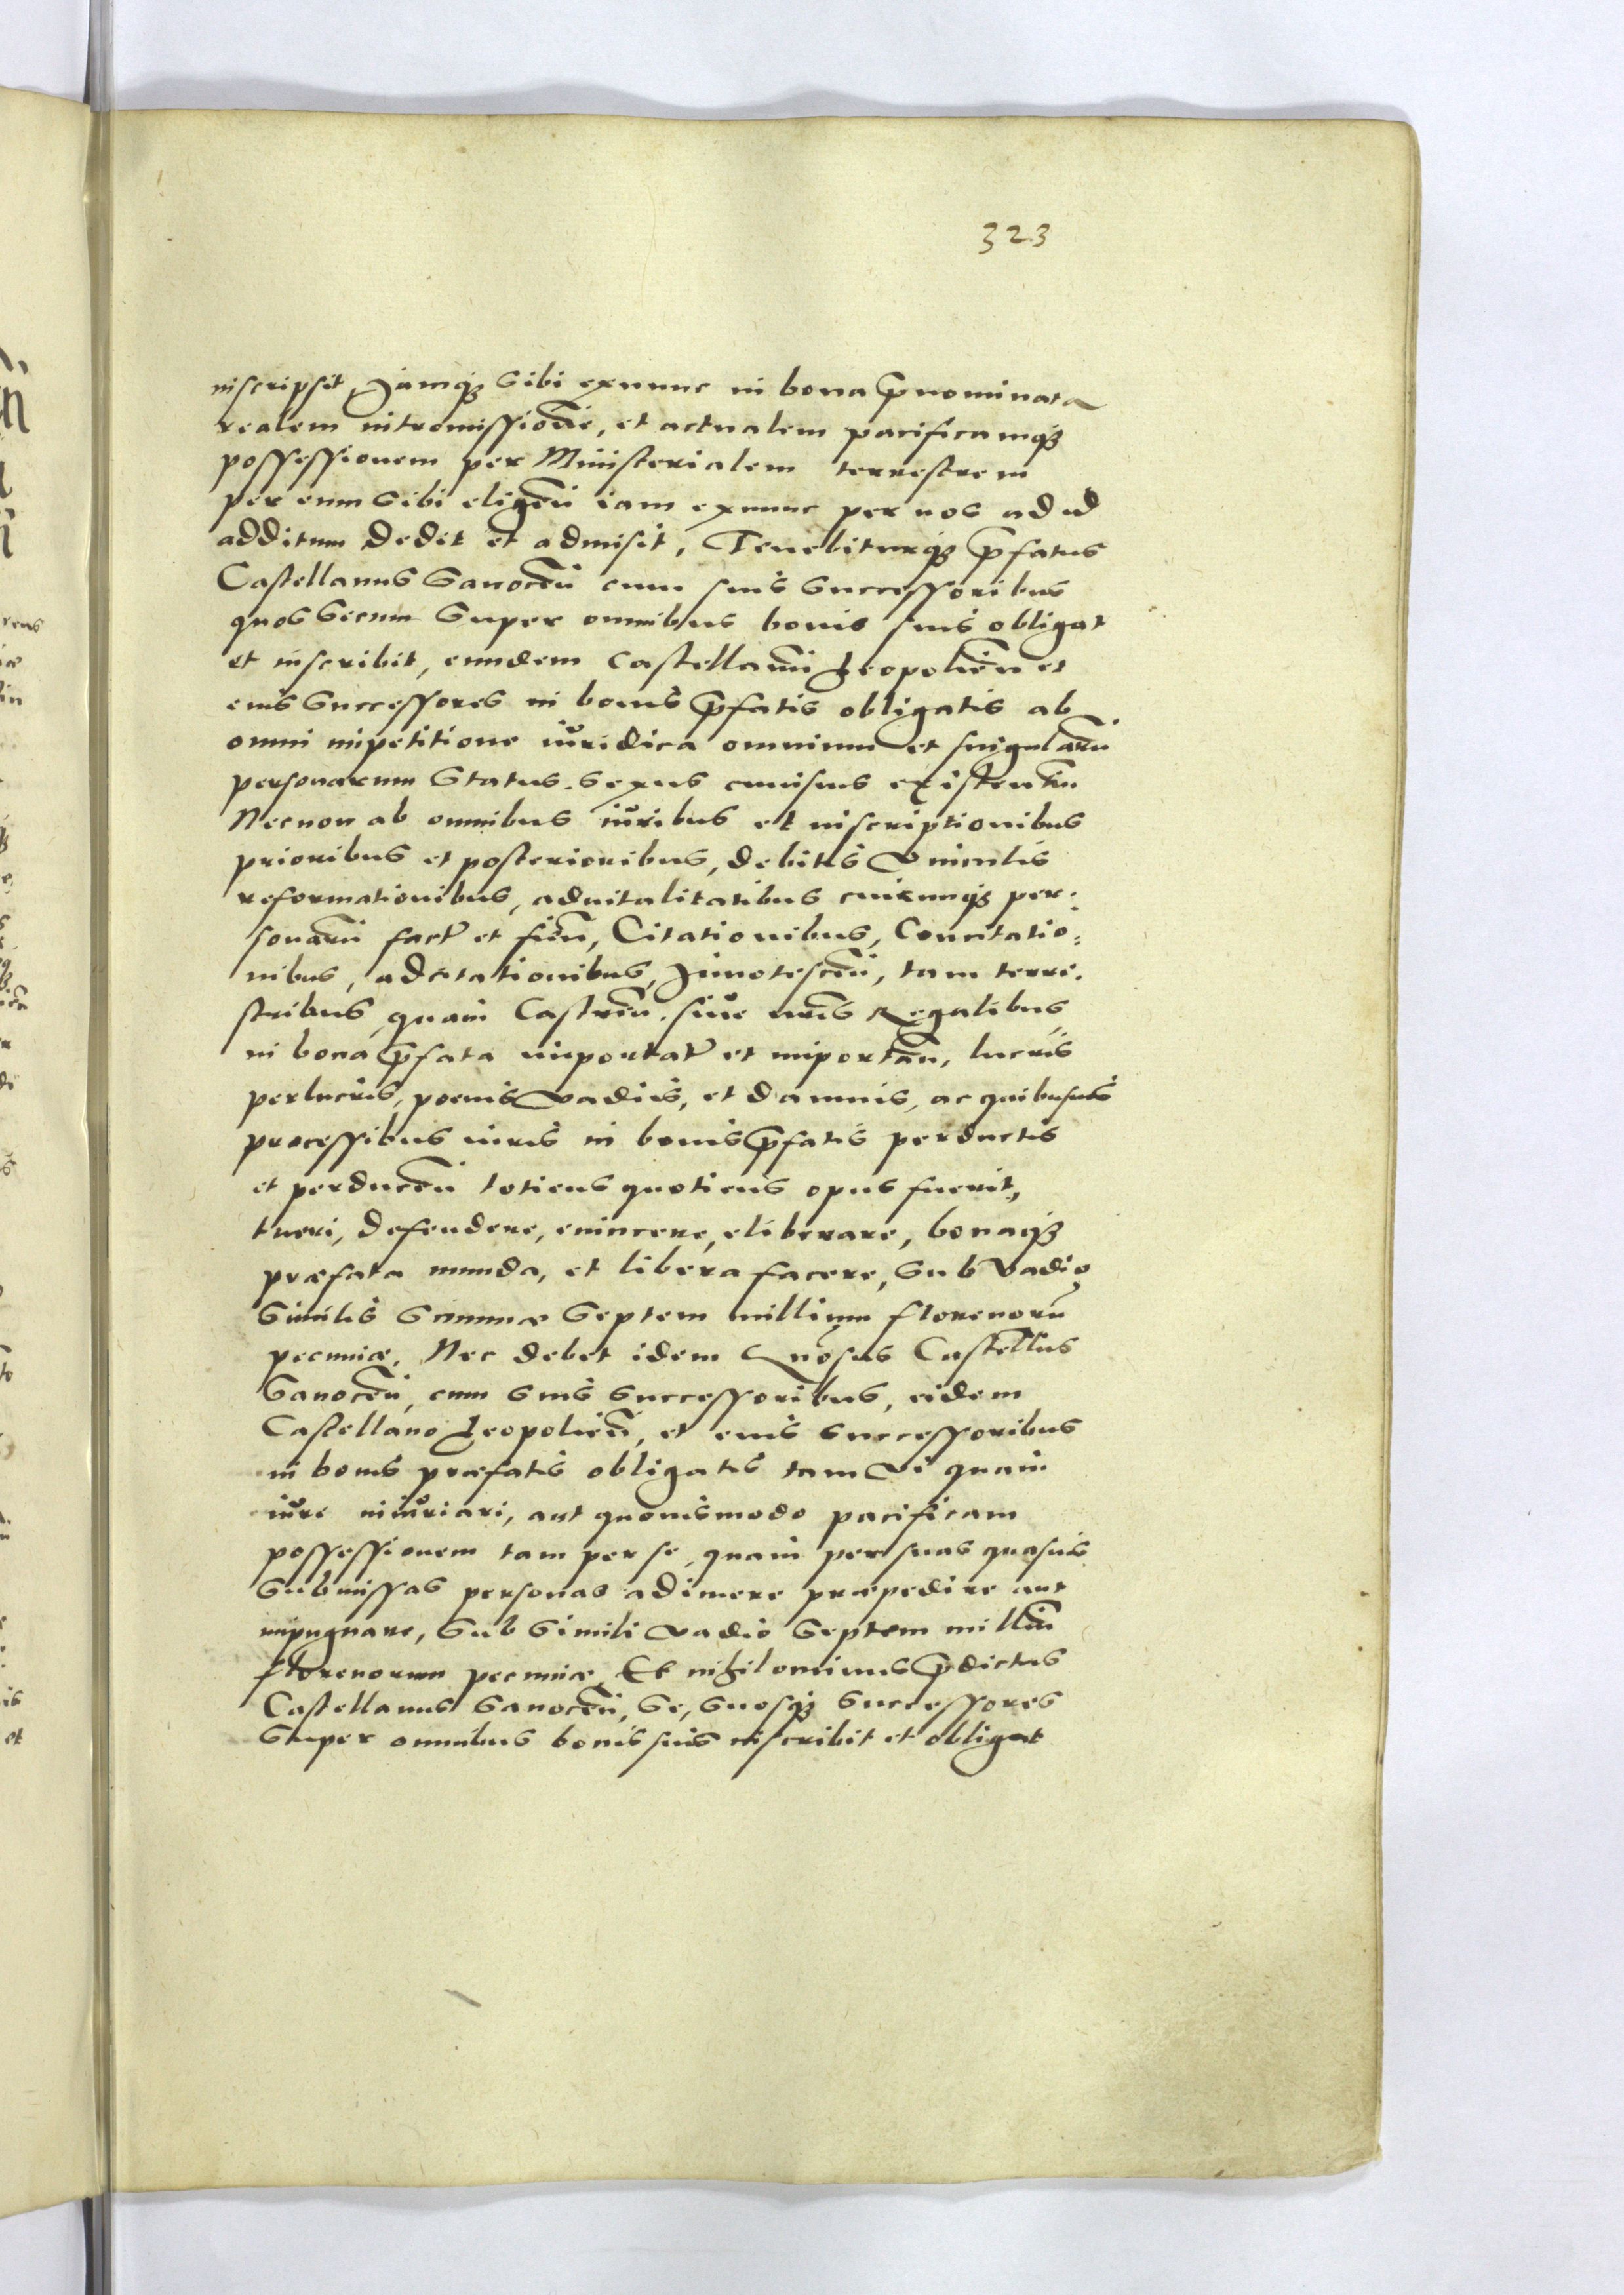 323
inscripsit, Jamq3 sibi exnunc in bona p̄nominata
realem intromissionē, et actualem pacificamq3
possessionem per Ministerialem terrestrem
per eum sibi eligen̄ iam exnunc per nos ad id
additum dedit et admisit, Tenebiturq3 p̄fatus
Castellanus Sanocen̄ cum suis successoribus
quos secum super omnibus bonis suis obligat
et inscribit, eundem Castellanū Leopolien̄ et
eius successores in bonis p̄fatis obligatis ab
omni impetitione iuridica omnium et singularū
personarum status. sexus cuiusuis existentiū
Necnon ab omnibus iuribus et inscriptionibus
prioribus et posterioribus, debitis vinculis
reformationibus, aduitalitatibus cuicunq3 per.
sonarū fact̄ et fien̄, Citationibus, Concitatio:
nibus, adcitationibus, Jnnotescen̄, tam terre.
stribus quam Castren̄. siue nr̄is Regalibus
in bona p̄fata importat̄ et importan̄, lucris
perlucris, poenis vadiis, et damnis, ac quibusuis
processibus iuris in bonis p̄fatis perductis
et perducen̄ totiens quotiens opus fuerit,
tueri, defendere, euincere, eliberare, bonaq3
præfata munda, et libera facere, sub vadio
similis summæ septem millium florenorū
pecuniæ, Nec debet idem Gn̄osus Castell̄us
Sanocen̄, cum suis successoribus, eidem
Castellano Leopolien̄, et eius successoribus
in bonis præfatis obligatis tam vi quam
iure iniuriari, aut quouismodo pacificam
possessionem tam per se, quam per suas quasuis
submissas personas adimere præpedire aut
impugnare, sub simili vadio septem milliū
florenorum pecuniæ, Et nihilominus p̄dictus
Castellanus Sanocen̄, se, suosq3 successores
super omnibus bonis suis inscribit et obligat